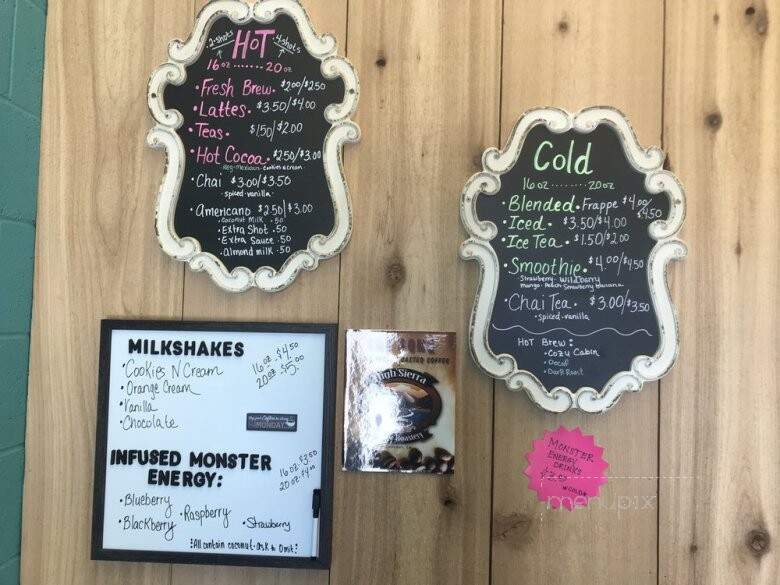 2-shots HOT 4-shots
16 oz ....... 20 oz
• Fresh Brew. $2.00/$2.50
• Lattes. $3.50/$4.00
• Teas. $1.50/$2.00
• Hot Cocoa. $2.50/$3.00
Reg-Mexican-Cookies n Cream
• Chai $3.00/$3.50
• spiced-vanilla
• Americano $2.50/$3.00
• Coconut Milk .50
• Extra Shot .50
• Extra Sauce .50
• almond milk .50
Cold
16 oz ........ 20 oz
• Blended. Frappe $4.00/$4.50
• Iced. $3.50/$4.00
• Ice Tea. $1.50/$2.00
• Smoothie. $4.00/$4.50
Strawberry- Wildberry
mango- Peach Strawberry Banana
• Chai Tea. $3.00/$3.50
• spiced-vanilla
HOT BREW:
• Cozy Cabin
• Decaf
• Dark Roast
MILKSHAKES
• Cookies N Cream
16 oz - $4.50
20 oz - $5.00
• Orange Cream
• Vanilla
• Chocolate
MONDAY
INFUSED MONSTER
ENERGY:
16 oz $3.50
20 oz $4.00
• Blueberry
• Raspberry
• Blackberry
• Strawberry
All contain coconut-ask to omit!
ROASTED COFFEE
High Sierra
Roasters
MONSTER
ENERGY
DRINKS
menupix